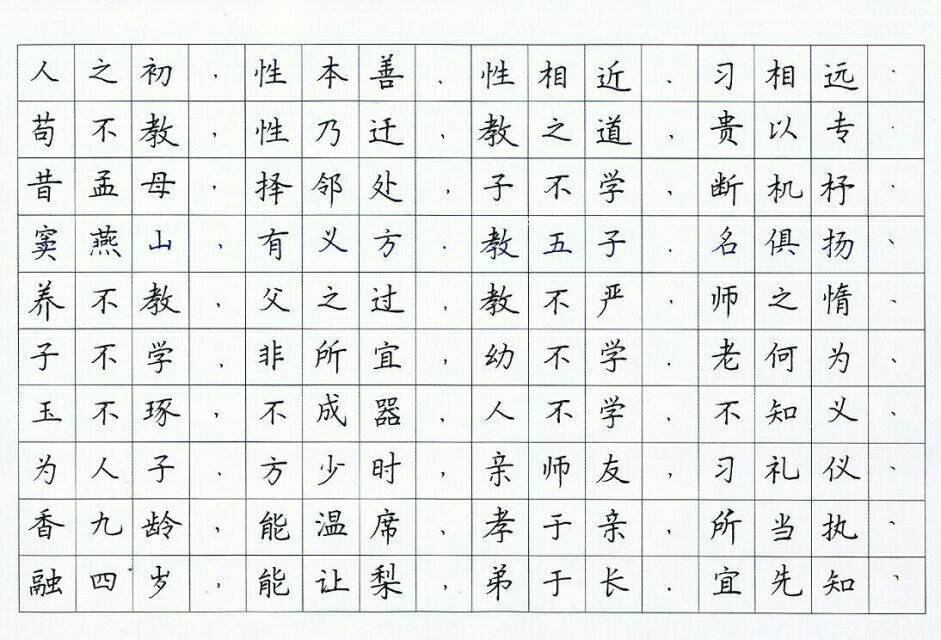 人之初，性本善，性相近，习相远、
苟不教，性乃迁，教之道，贵以专、
昔孟母，择邻处，子不学，断机杼、
窦燕山，有义方，教五子，名俱扬、
养不教，父之过，教不严，师之惰、
子不学，非所宜，幼不学，老何为、
玉不琢，不成器，人不学，不知义、
为人子，方少时，亲师友，习礼仪、
香九龄，能温席，孝于亲，所当执、
融四岁，能让梨，弟于长，宜先知、